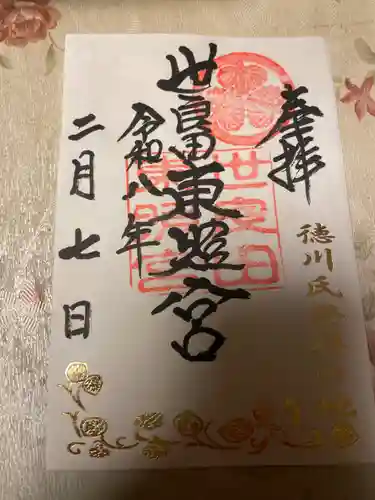 奉拝
徳川氏
世良田東照宮
世良田
東照宮
令和八年
二月七日